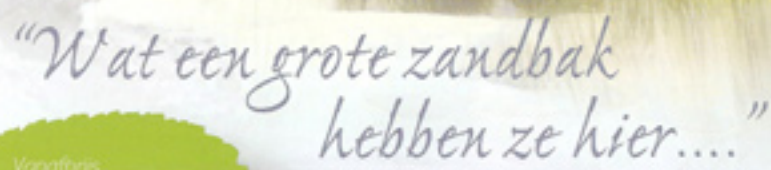 “Wat een grote zandbak
hebben ze hier....”
Vanafprijs